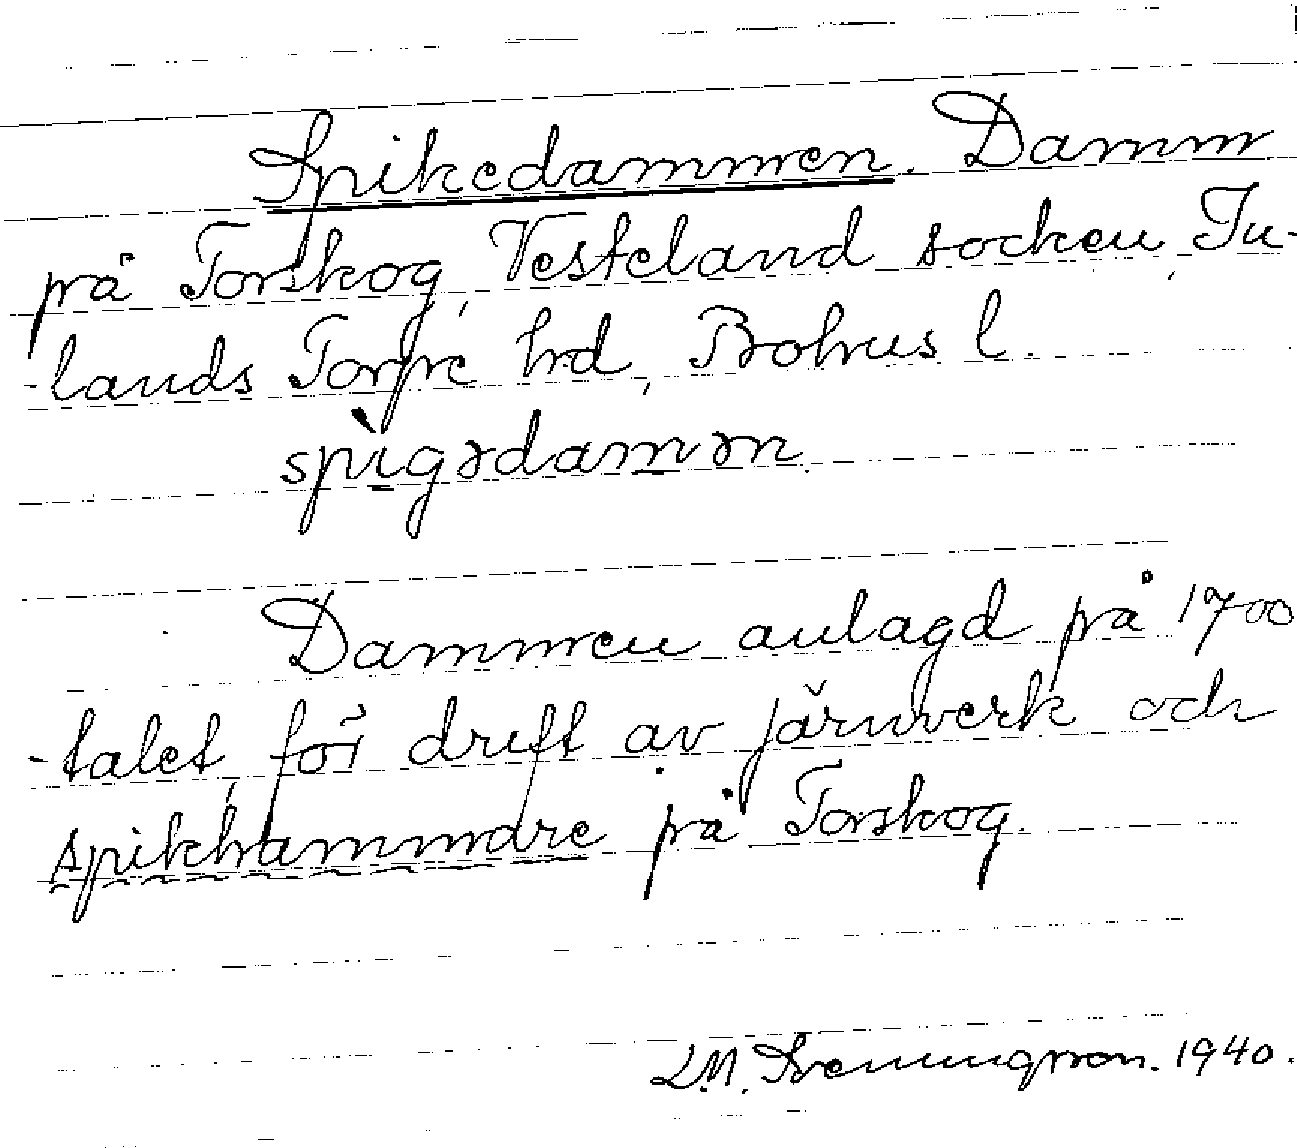 Spikedammen. Damm
på Torskog, Vesteland socken, In-
-lands Torpe hrd, Bohus l.
spìgədamən
Dammen anlagd på 1700
-talet, för drift av järnverk och
spikhammare på Torskog.
L.M. Svenungsson. 1940.